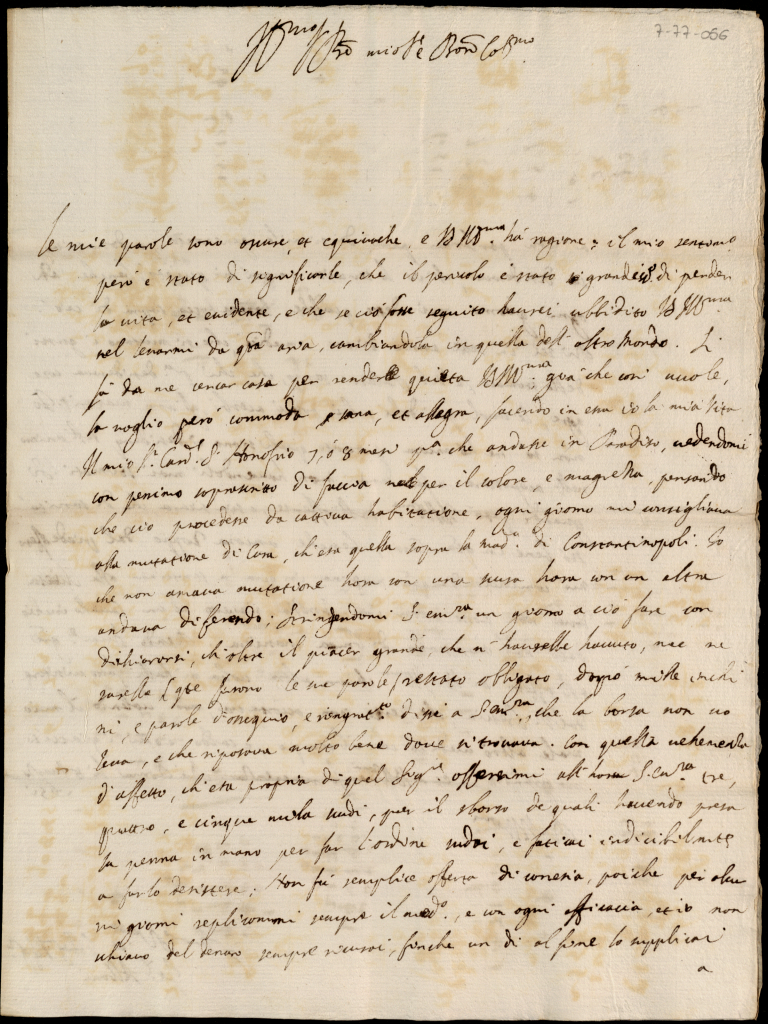 7-77-066
Ill.mo Sig.re mio Sig.re e Pron Col.mo
Le mie parole sono oscure, et equivoche, e VS Ill.ma hà ragione; il mio sentim.o
però è stato di significarle, che il pericolo è stato grande di perder
la vita, et evidente, e che se ciò fosse seguito haurei ubbidito VS Ill.ma
nel levarmi da q.ta aria, cambiandola in quella dell'altro Mondo. Si
fà da me cercar casa per rendere quieta VS Ill.ma già che così vuole,
la voglio però commoda sana, et allegra, facendo in essa io la mia vita
Il mio S.r Card.l S. Honofrio 7, ò 8 mesi p.a che andasse in Paradiso, vedendomi
con pessimo soprascritto di faccia per il colore, e magrezza, pensando
che ciò procedesse da cattiva habitatione, ogni giorno mi consigliava
alla mutatione di Casa, ch'era quella sopra la Mad.a di Constantinopoli. Io
che non amava mutatione hora con una scusa hora con un altra
andava diferendo; Stringendomi S. Em.za un giorno a ciò fare con
dichiararsi, ch'oltre il piacer grande, che n'haurebbe havuto, me ne
sarebbe (q.te furono le sue parole) restato obligato, doppò mille inchi
ni, e parole d'ossequio, e rengrat.to dissi a S. Em.za, che la borsa non vo
leva, e che riposava molto bene dove si trovava. Con quella vehemenza
d'affetto, ch'era propria di quel Sig.re offerimi all'hora S. Em.za tre,
quattro, e cinque mila scudi, per il sborso de quali havendo presa
la penna in mano per far l'ordine sudai, e faticai indicibilm.te
a farlo desistere; Non fù semplice offerta di cortesia, poiche per alcu
ni giorni replicommi sempre il med.o, e con ogni efficacia, et io non
schiavo del denaro sempre ricusai, finche un dì al fine lo supplicai
a